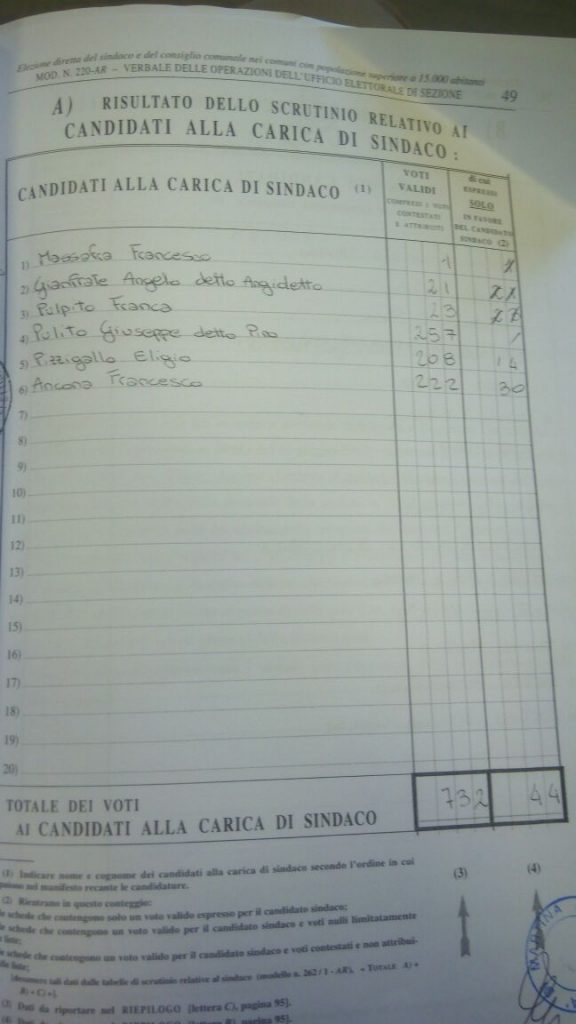 Elezione diretta del sindaco e del consiglio comunale nei comuni con popolazione superiore a 15.000 abitanti
MOD. N. 220-AR – VERBALE DELLE OPERAZIONI DELL'UFFICIO ELETTORALE DI SEZIONE 49
A) RISULTATO DELLO SCRUTINIO RELATIVO AI
CANDIDATI ALLA CARICA DI SINDACO :
CANDIDATI ALLA CARICA DI SINDACO (1)
VOTI
VALIDI
COMPRESI I VOTI
CONTESTATI
E ATTRIBUITI
di cui
ESPRESSI
SOLO
IN FAVORE
DEL CANDIDATO
SINDACO (2)
1) Massafra Francesco 1
2) Gianfrate Angelo detto Angioletto 21
3) Pulpito Franca 23
4) Pulito Giuseppe detto Pino 257 /
5) Pizzigallo Eligio 208 14
6) Ancona Francesco 222 30
7)
8)
9)
10)
11)
12)
13)
14)
15)
16)
17)
18)
19)
20)
TOTALE DEI VOTI
AI CANDIDATI ALLA CARICA DI SINDACO 732 44
(1) Indicare nome e cognome dei candidati alla carica di sindaco secondo l'ordine in cui
nel manifesto recante le candidature.
(2) Rientrano in questo conteggio:
schede che contengono solo un voto valido espresso per il candidato sindaco;
schede che contengono un voto valido per il candidato sindaco e voti nulli limitatamente
liste;
schede che contengono un voto valido per il candidato sindaco e voti contestati e non attribui-
liste;
tali dati dalle tabelle di scrutinio relative al sindaco (modello n. 262/1-AR), « TOTALE A) +
B) + C) »].
(3) Dati da riportare nel RIEPILOGO [lettera C), pagina 95].
(3)
(4)